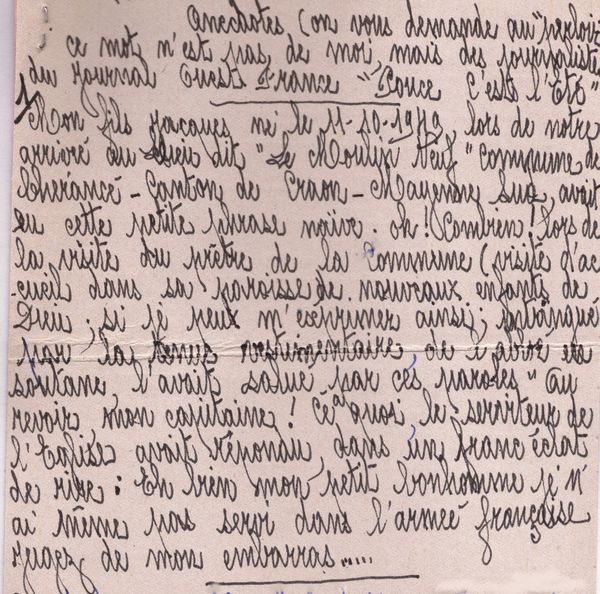 Anecdotes (on vous demande au "perloir
ce mot n'est pas de moi, mais des journalistes
du Journal Ouest France "Pouce C'est l'Eté"
1 Mon fils Jacques né le 11-10-1949, lors de notre
arrivé au lieu dit "Le Moulin Neuf" Commune de
Chérancé - Canton de Craon - Mayenne Sud, avait
eu cette petite phrase naïve. oh! Combien! lors de
la visite du prêtre de la Commune (visite d'ac
cueil dans sa paroisse de nouveaux enfants de
Dieu, si je peux m'exprimer ainsi; intrigué
par la tenue vestimentaire de l'abbé en
soutane, l'avait salué par ces paroles "Au
revoir mon capitaine! Cé à quoi le serviteur de
l'Eglise avait répondu, dans un franc éclat
de rire: Eh bien mon petit bonhomme je n'
ai même pas servi dans l'armeé française
jugez de mon embarras.....